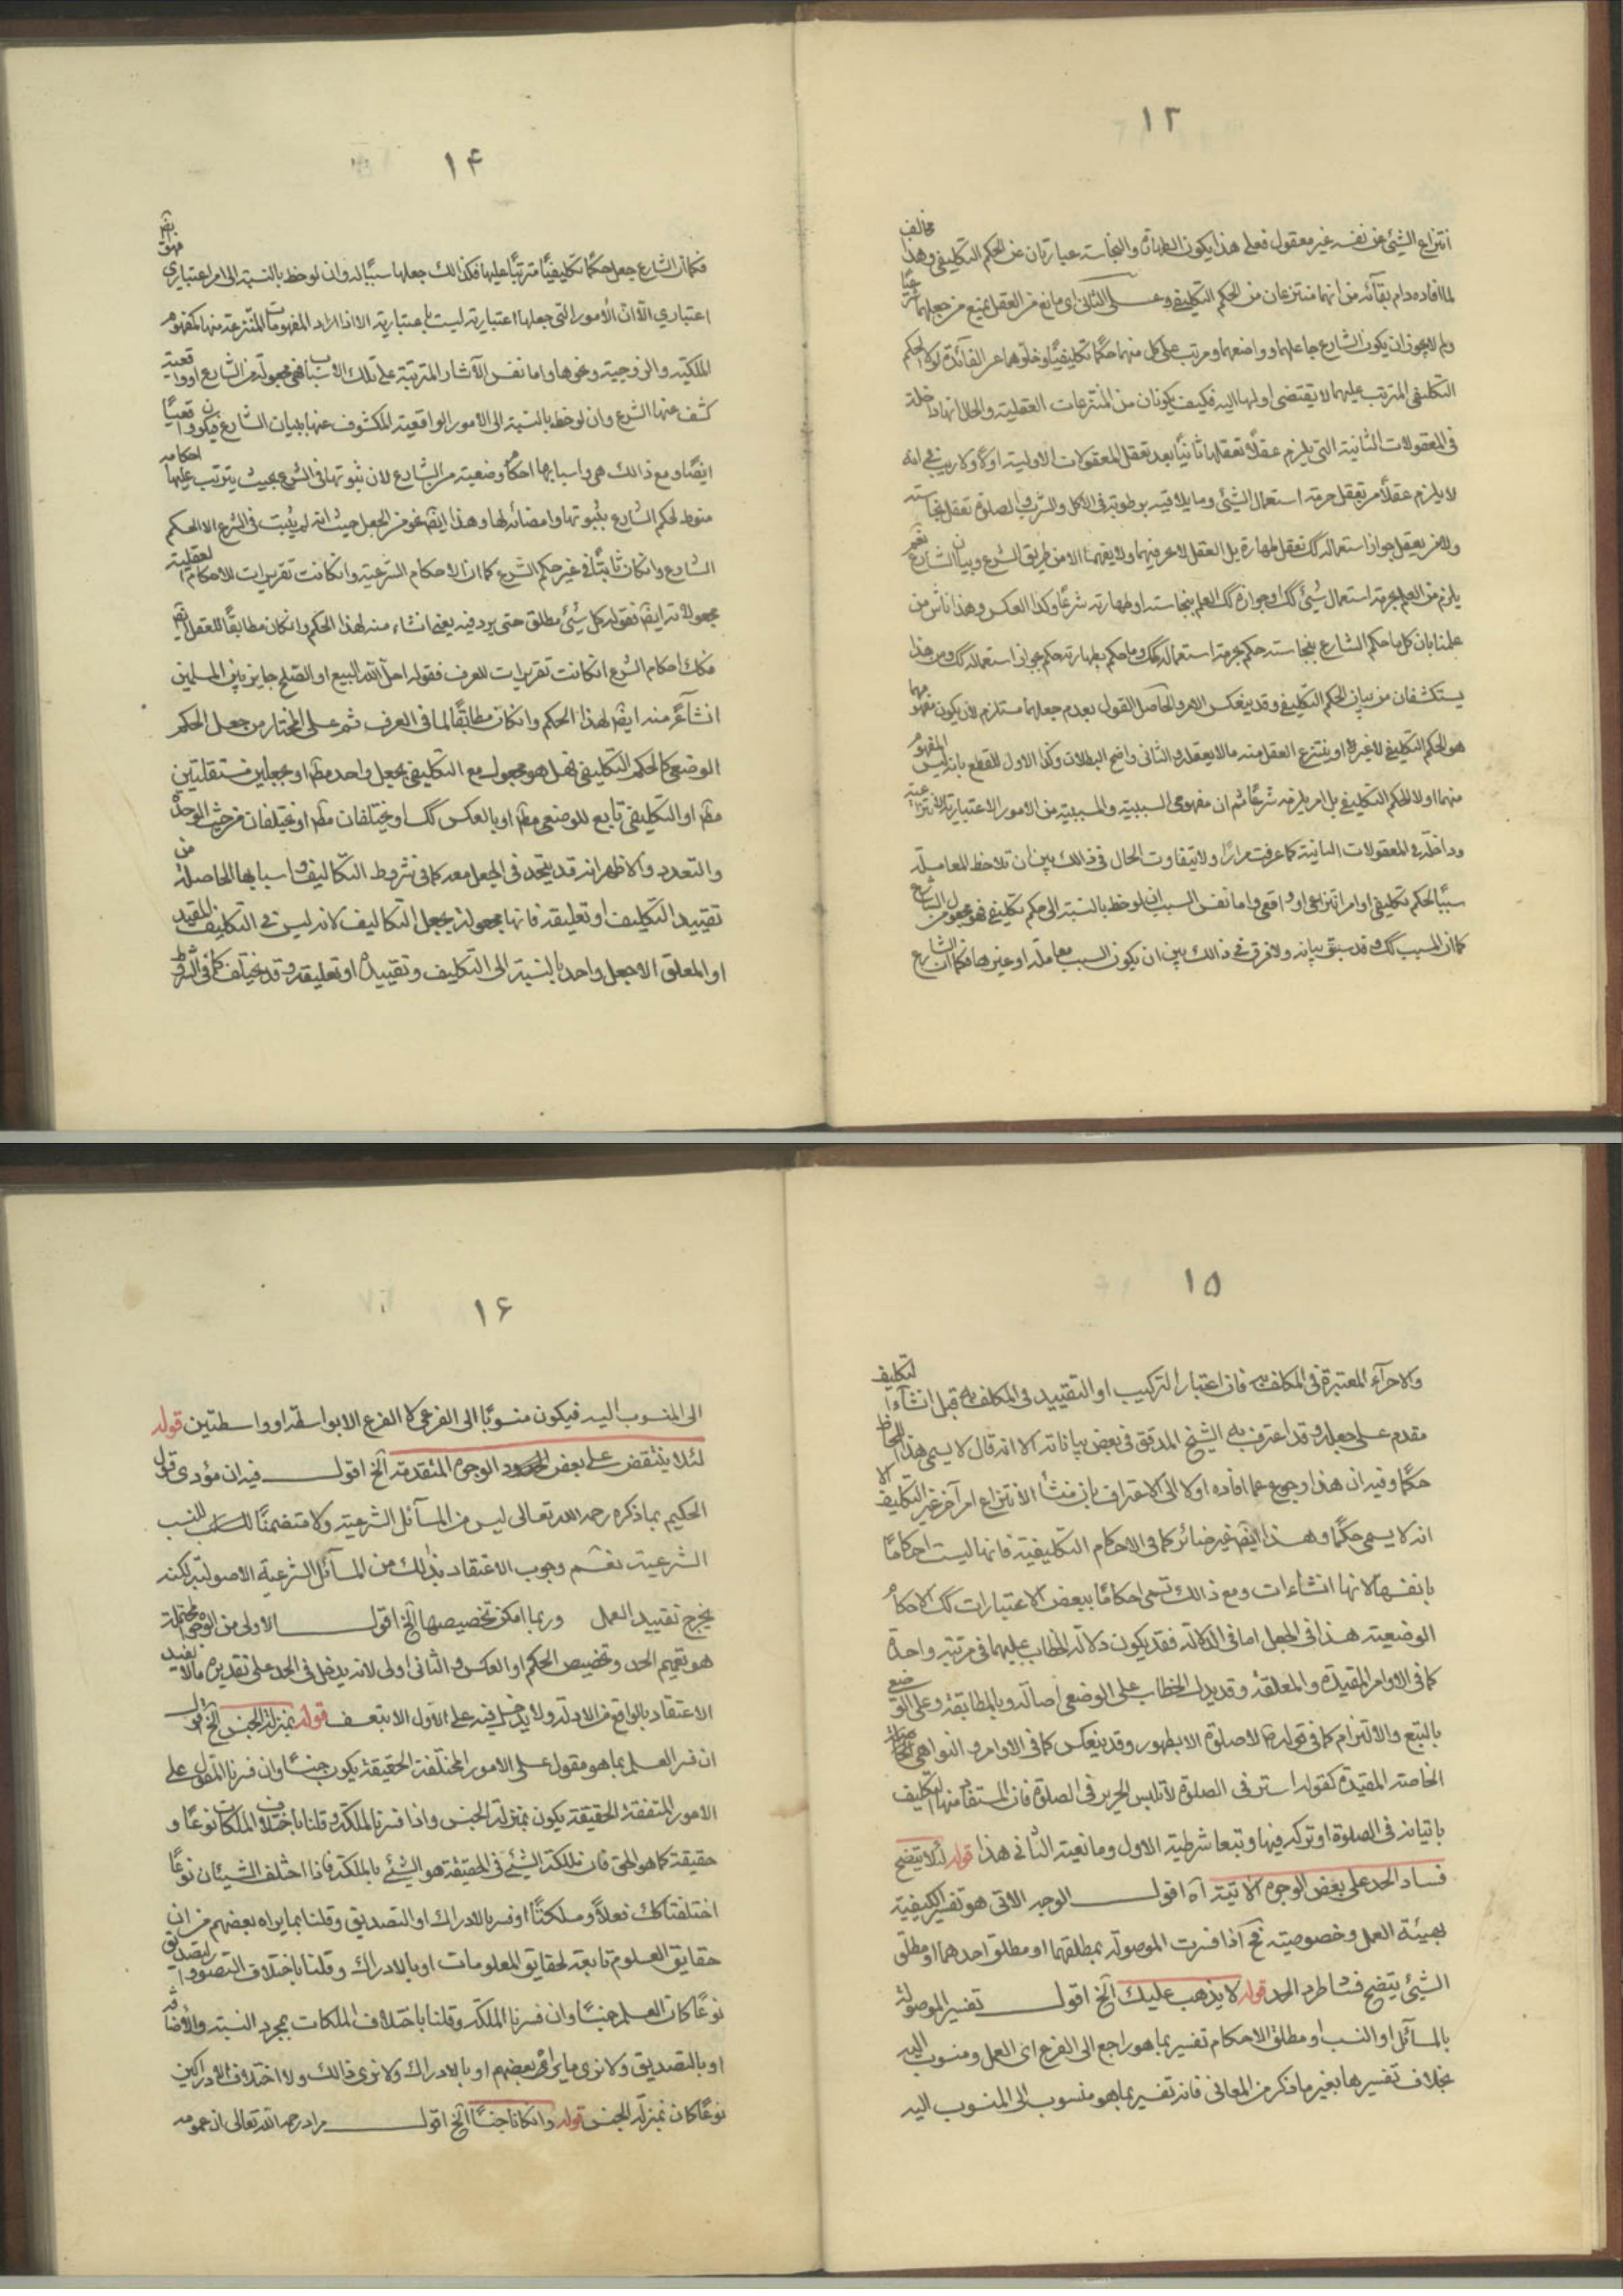 ١٣
انتزاع الشیئ عن نفسه غیر معقول فعلی هذا یکون الطهارة والنجاسة عبارتان عن الحکم التکلیفی وهذا مخالف
لما افاده دام بقائه من انهما منتزعان من الحکم التکلیفی وعلی الثانی ای مانع من العقل یمنع من جعلهما
ولم لا یجوز ان یکون الشارع جاعلهما وواضعهما ومرتب علی کل منهما حکمًا تکلیفیًا وخلوهما عن الفائدة لولا الحکم
التکلیفی المترتب علیهما لا یقتضی اولهما الیه فکیف یکونان من المنتزعات العقلیة والحال انها داخلة
فی المعقولات الثانیة التی یلزم عقلًا تعقلها ثانیًا بعد تعقل المعقولات الاولیة اولًا ولا ریب فی انه
لا یلزم عقلًا من تعقل حرمة استعمال الشیئ وما یلاقیه برطوبة فی الاکل والشرب والصلوة تعقل نجاسته
ولا من تعقل جواز استعماله کک تعقل طهارة بل العقل لا یعرفهما ولا یفهمهما الا من طریق الشرع وبیان الشارع نعم
یلزم من العلم بحرمة استعمال شیئ کک او جوازه کک العلم بنجاسته او طهارته شرعًا وکذا العکس وهذا ناش من
علمنا بان کل ما حکم الشارع بنجاسته حکم بحرمة استعماله کک وما حکم بطهارته حکم بجواز استعماله کک ومن هذا
یستکشفان من بیان الحکم التکلیفی وقد ینعکس الامر والحاصل القول بعدم جعلهما مستلزم لان یکون مفهومهما
هو الحکم التکلیفی لا غیره او ینتزع العقل منه ما لا یعقله والثانی واضح البطلان وکذا الاول للقطع بانه لیس المفهوم
منهما اولًا الحکم التکلیفی بل امر یلزمه شرعًا ثم ان مفهومی السببیة والمسببیة من الامور الاعتباریة الانتزاعیة
وداخلة فی المعقولات الثانیة کما عرفت مرارًا ولا یتفاوت الحال فی ذالک بین ان تلاحظ المعاملة
سببًا لحکم تکلیفی او امر انتزاعی او واقعی واما نفس السبب ان لوحظ بالنسبة الی حکم تکلیفی فهو مجعول من الشارع
کما ان المسبب کک وقد سبق بیانه ولا فرق فی ذالک بین ان یکون السبب معاملة او غیرها فکما ان الشارع
١۴
فکما ان الشارع جعل حکمًا تکلیفیًا مترتبًا علیها فکذالک جعلها سببًا له وان لوحظ بالنسبة الی امر اعتباری فهو ایضا
اعتباری الا ان الامور التی جعلها اعتباریة لیست باعتباریة الا اذا اراد المفهومات المنتزعة منها کمفهوم
الملکیة والزوجیة ونحوها واما نفس الآثار المترتبة علی تلک الاسباب فهی مجعولة من الشارع او واقعیة
کشف عنها الشرع وان لوحظ بالنسبة الی الامور الواقعیة المکشوف عنها ببیان الشارع فیکون واقعیًا
ایضًا ومع ذالک هی واسبابها احکام وضعیة من الشارع لان ثبوتها فی الشرع بحیث یترتب علیها احکامه
منوط لحکم الشارع بثبوتها وامضائه لها وهذا ایضا نحو من الجعل حیث انه لم یثبت فی الشرع الا لحکم
الشارع وان کان ثابتًا فی غیر حکم الشرع کما ان الاحکام الشرعیة وان کانت تقریرات للاحکام العقلیة
مجعولاته ایضا فقوله کل شیئ مطلق حتی یرد فیه نهی انشاء منه لهذا الحکم وان کان مطابقًا للعقل ایضا
فکک احکام الشرع ان کانت تقریرات للعرف فقوله احل الله البیع او الصلح جایز بین المسلمین
انشآء منه ایضا لهذا الحکم وان کان مطابقًا لما فی العرف ثم علی المختار من جعل الحکم
الوضعی کالحکم التکلیفی فهل هو مجعول مع التکلیفی بجعل واحد مطلقا او بجعلین مستقلتین
مطلقا او التکلیفی تابع للوضعی مطلقا او بالعکس کک او یختلفان مطلقا او یختلفان من حیث الوحدة
والتعدد والاظهر انه قد یتحد فی الجعل معه کما فی شروط التکالیف واسبابها الحاصلة من
تقیید التکلیف او تعلیقه فانها مجعولة بجعل التکالیف لانه لیس فی التکلیف المقید
او المعلق الا جعل واحد بالنسبة الی التکلیف وتقییده او تعلیقه وقد یختلف کما فی الشروط
١۵
والاجزآء المعتبرة فی المکلف به فان اعتبار الترکیب او التقیید فی المکلف به قبل انشآء التکلیف
مقدم علی جعله وقد اعترف به الشیخ المدقق فی بعض بیاناته الا انه قال لا یسمی هذا اللحاظ
حکمًا وفیه ان هذا رجوع عما افاده اولا الی الاعتراف بان منشأ الانتزاع امر آخر غیر التکلیف الا
انه لا یسمی حکمًا وهذا ایضا غیر ضائر کما فی الاحکام التکلیفیة فانها لیست احکامًا
بانفسها لانها انشاءات ومع ذالک تسمی احکامًا ببعض الاعتبارات کک الاحکام
الوضعیة هذا فی الجعل اما فی الدلالة فقد یکون دلالة الخطاب علیهما فی مرتبة واحدة
کما فی الاوامر المقیدة والمعلقة وقد یدل الخطاب علی الوضعی اصالة وبالمطابقة وعلی الوضع
بالتبع والالتزام کما فی قوله لا صلوة الا بطهور وقد ینعکس کما فی الاوامر والنواهی
الخاصة المقیدة کقوله استتر فی الصلوة لا تلبس الحریر فی الصلوة فان المستفاد منها التکلیف
باتیانه فی الصلوة او ترکه فیها وتبعا شرطیة الاول ومانعیة الثانی هذا قوله لئلا یتضح
فساد الحد علی بعض الوجوه الآتیة آه اقول الوجه الاتی هو تفسیر الکیفیة
بهیئة العمل وخصوصیته فح اذا فسرت الموصولة بمطلقها او مطلق احدهما او مطلق
الشیئ یتضح فساد طرد الحد قوله لا یذهب علیک آلخ اقول تفسیر الموصولة
بالمسآئل او النسب او مطلق الاحکام تفسیر بما هو راجع الی الفرع ای العمل ومنسوب الیه
بخلاف تفسیرها بغیر ما ذکر من المعانی فانه تفسیر بما هو منسوب الی المنسوب الیه
١۶
الی المنسوب الیه فیکون منسوبًا الی الفرعی لا الفرع الا بواسطة او واسطتین قوله
لئلا ینتقض علی بعض الوجوه المتقدمة آلخ اقول فیه ان مؤدی قول
الحکیم بما ذکره رحمه الله تعالی لیس من المسآئل الشرعیة ولا متضمنًا للنسب
الشرعیة نعم وجوب الاعتقاد بذلک من المسآئل الشرعیة الاصولیة لکنه
یخرج تقیید العمل وربما امکن تخصیصها آلخ اقول الاولی من الوجوه المحتملة
هو تعمیم الحد وتخصیص الحکم او العکس والثانی اولی لانه یدخل فی الحد علی تقدیره ما لا یفید
الاعتقاد بالواقع من الادلة ولا یدخل فیه علی الاول الا بتعسف قوله بمنزلة الجنس آلخ اقول
ان فسر العلم بما هو مقول علی الامور المختلفة الحقیقة یکون جنسًا وان فسر بالمقول علی
الامور المتفقة الحقیقة یکون بمنزلة الجنس واذا فسر بالملکة وقلنا باختلاف الملکات نوعًا و
حقیقة کما هو الحق فان ملکة الشیئ فی الحقیقة هو الشیئ بالملکة فاذا اختلف الشیئان نوعًا
اختلفتا کک فعلًا وملکتًا او فسر بالادراک او التصدیق وقلنا بما یراه بعضهم من ان
حقایق العلوم تابعة لحقایق المعلومات او بالادراک وقلنا باختلاف التصور والتصدیق
نوعًا کان العلم جنسًا وان فسر بالملکة وقلنا باختلاف الملکات بمجرد النسبة والاضافة
او بالتصدیق ولا نری ما یراه بعضهم او بالادراک ولا نری ذالک ولا اختلاف الادراکین
نوعًا کان بمنزلة الجنس قوله وان کانا جنسًا آلخ اقول مراد رحمه الله تعالی ان عمومه